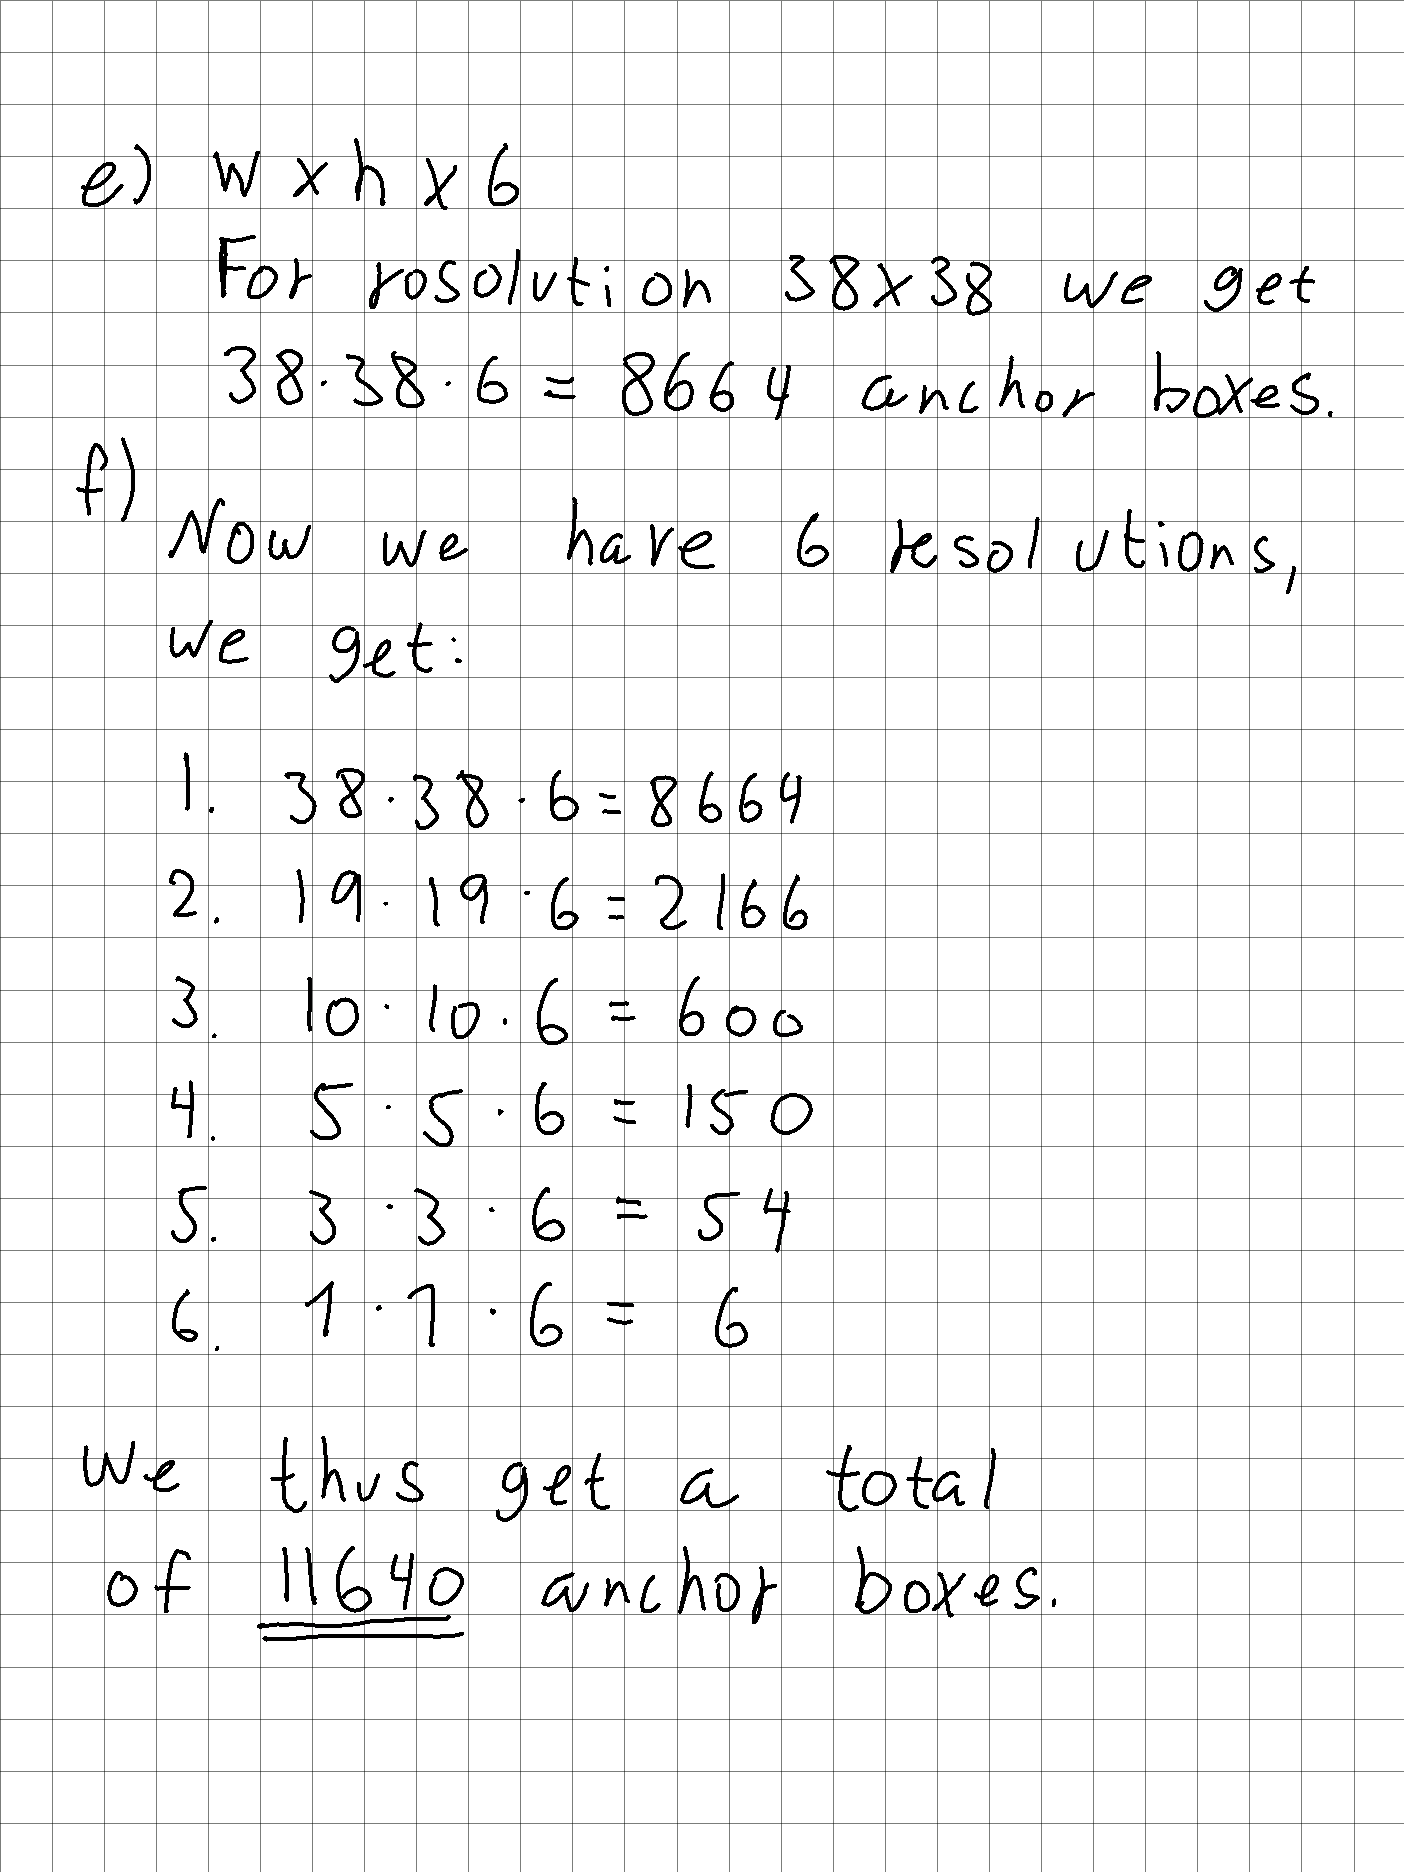 e) w x h x 6
For rosolution 38x38 we get
38·38·6 = 8664 anchor boxes.
f)
Now we have 6 resolutions,
we get:
1. 38·38·6=8664
2. 19·19·6=2166
3. 10·10·6 = 600
4. 5·5·6 = 150
5. 3·3·6 = 54
6. 1·1·6 = 6
We thus get a total
of 11640 anchor boxes.